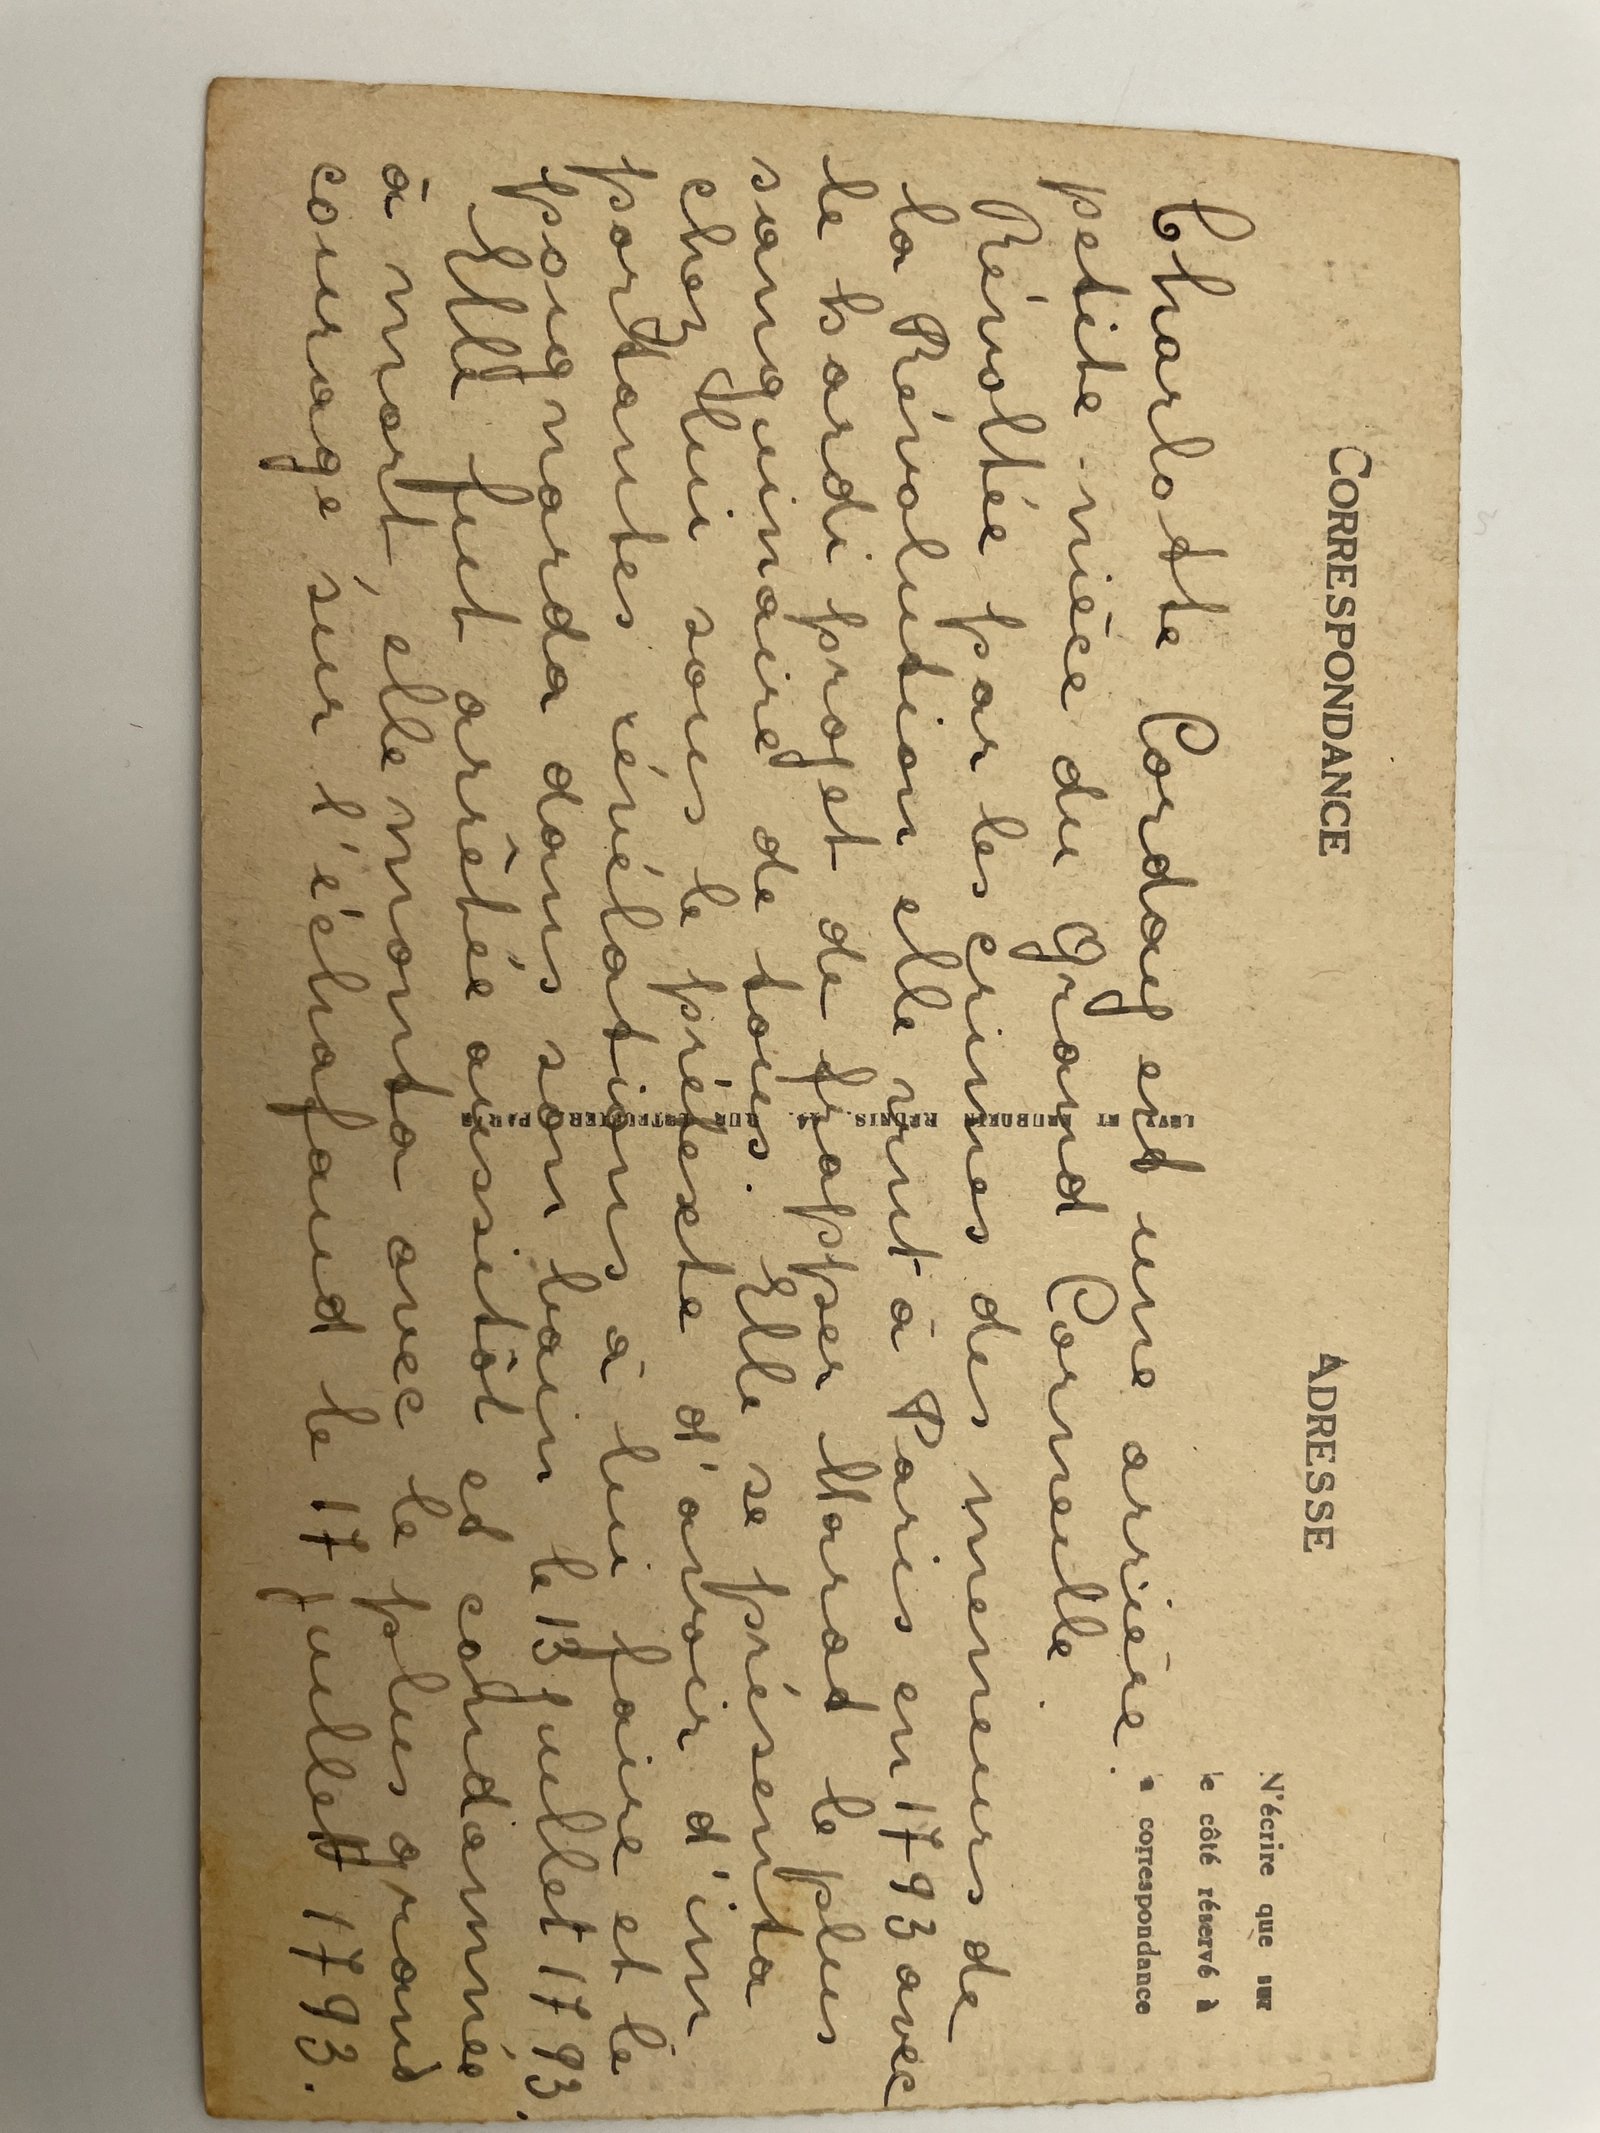 CORRESPONDANCE
ADRESSE
N'écrire que sur
le côté réservé à
la correspondance
Charlotte Corday est une arrière.
petite-nièce du Grand Corneille.
Révoltée par les crimes des meneurs de
la Révolution elle vint à Paris en 1793 avec
le hardi projet de frapper Marat le plus
sanguinaire de tous. Elle se présenta
chez lui sous le prétexte d'avoir d'im
portantes révélations à lui faire et le
poignarda dans son bain le 13 juillet 1793.
Elle fut arrêtée aussitôt et condamnée
à mort, elle monta avec le plus grand
courage sur l'échafaud le 17 juillet 1793.
LEVY ET NEURDEIN REUNIS, 44, RUE LETELLIER, PARIS